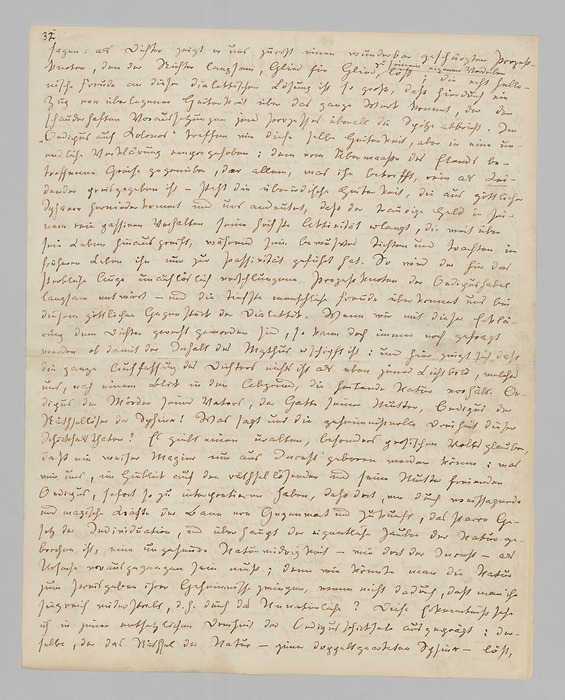 37
sagen: als Dichter zeigt er uns zuerst einen wunderbar geschürzten Prozeß-
knoten, den der Richter langsam, Glied für Glied, zu seinem eigenen Verderben löst; die echt helle-
nische Freude an dieser dialektischen Lösung ist so groß, daß hierdurch ein
Zug von überlegener Heiterkeit über das ganze Werk kommt, der den
schauderhaften Voraussetzungen jenes Prozesses überall die Spitze abbricht. Im
„Oedipus auf Kolonos“ treffen wir diese selbe Heiterkeit, aber in eine un-
endliche Verklärung emporgehoben: dem vom Übermaasse des Elends be-
troffenen Greise gegenüber, der allem, was ihn betrifft, rein als Lei-
dender preisgegeben ist – steht die überirdische Heiterkeit, die aus göttlicher
Sphäre herniederkommt und uns andeutet, daß der traurige Held in sei-
nem rein passiven Verhalten seine höchste Aktivität erlangt, die weit über
sein Leben hinausgreift, während sein bewußtes Dichten und Trachten im
früheren Leben ihn nur zur Passivität geführt hat. So wird der für das
sterbliche Auge unauflöslich verschlungene Prozeßknoten der Oedipusfabel
langsam entwirrt – und die tiefste menschliche Freude überkommt uns bei
diesem göttlichen Gegenstück der Dialektik. Wenn wir mit dieser Erklä-
rung dem Dichter gerecht geworden sind, so kann doch immer noch gefragt
werden ob damit der Inhalt des Mythus erschöpft ist: und hier zeigt sich, daß
die ganze Auffassung des Dichters nichts ist als eben jenes Lichtbild, welches
uns, nach einem Blick in den Abgrund, die heilende Natur vorhält. Oe-
dipus der Mörder seines Vaters, der Gatte seiner Mutter, Oedipus der
Räthsellöser der Sphinx! Was sagt uns die geheimnißvolle Dreiheit dieser
Schicksalsthaten? Es giebt einen uralten, besonders persischen Volksglauben,
daß ein weiser Magier nur aus Incest geboren werden könne: was
wir uns, im Hinblick auf den räthsellösenden und seine Mutter freienden
Oedipus, sofort so zu interpretieren haben, daß dort, wo durch weissagende
und magische Kräfte der Bann von Gegenwart und Zukunft, das starre Ge-
setz der Individuation, und überhaupt der eigentliche Zauber der Natur ge-
brochen ist, eine ungeheure Naturwidrigkeit – wie dort der Incest – als
Ursache vorausgegangen sein muß; denn wie könnte man die Natur
zum Preisgeben ihrer Geheimnisse zwingen, wenn nicht dadurch, daß man ihr
siegreich widerstrebt, d.h. durch das Unnatürliche? Diese Erkenntniß sehe
ich in jener entsetzlichen Dreiheit der Oedipusschicksale ausgeprägt: der-
selbe, der das Räthsel der Natur – jener doppeltgearteten Sphinx – löst,